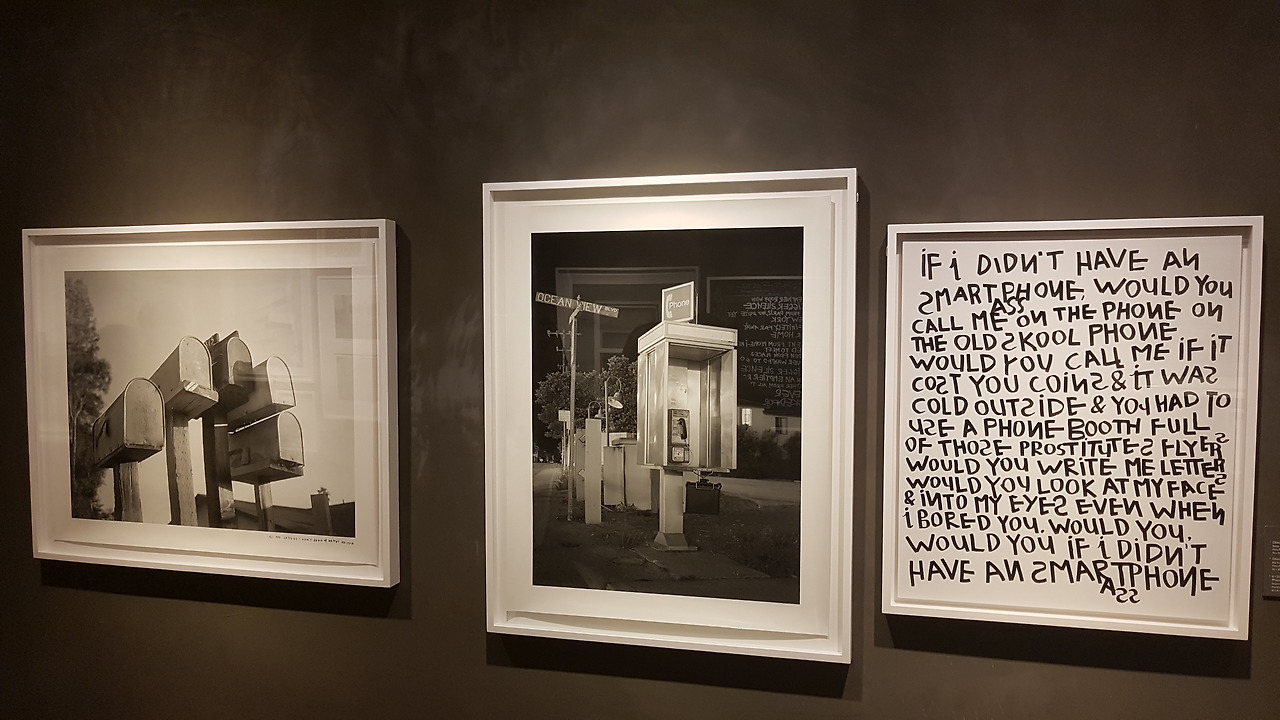 OCEAN VIEW BLVD
Phone
IF i DIDN'T HAVE AN
SMARTPHONE, WOULD YOU
ASS
CALL ME ON THE PHONE ON
THE OLD SKOOL PHONE
WOULD YOU CALL ME IF IT
COST YOU COINS & IT WAS
COLD OUTSIDE & YOU HAD TO
USE A PHONE BOOTH FULL
OF THOSE PROSTITUTES FLYERS
WOULD YOU WRITE ME LETTERS
WOULD YOU LOOK AT MY FACE
& INTO MY EYES EVEN WHEN
i BORED YOU. WOULD YOU,
WOULD YOU IF i DIDN'T
HAVE AN SMARTPHONE
ASS